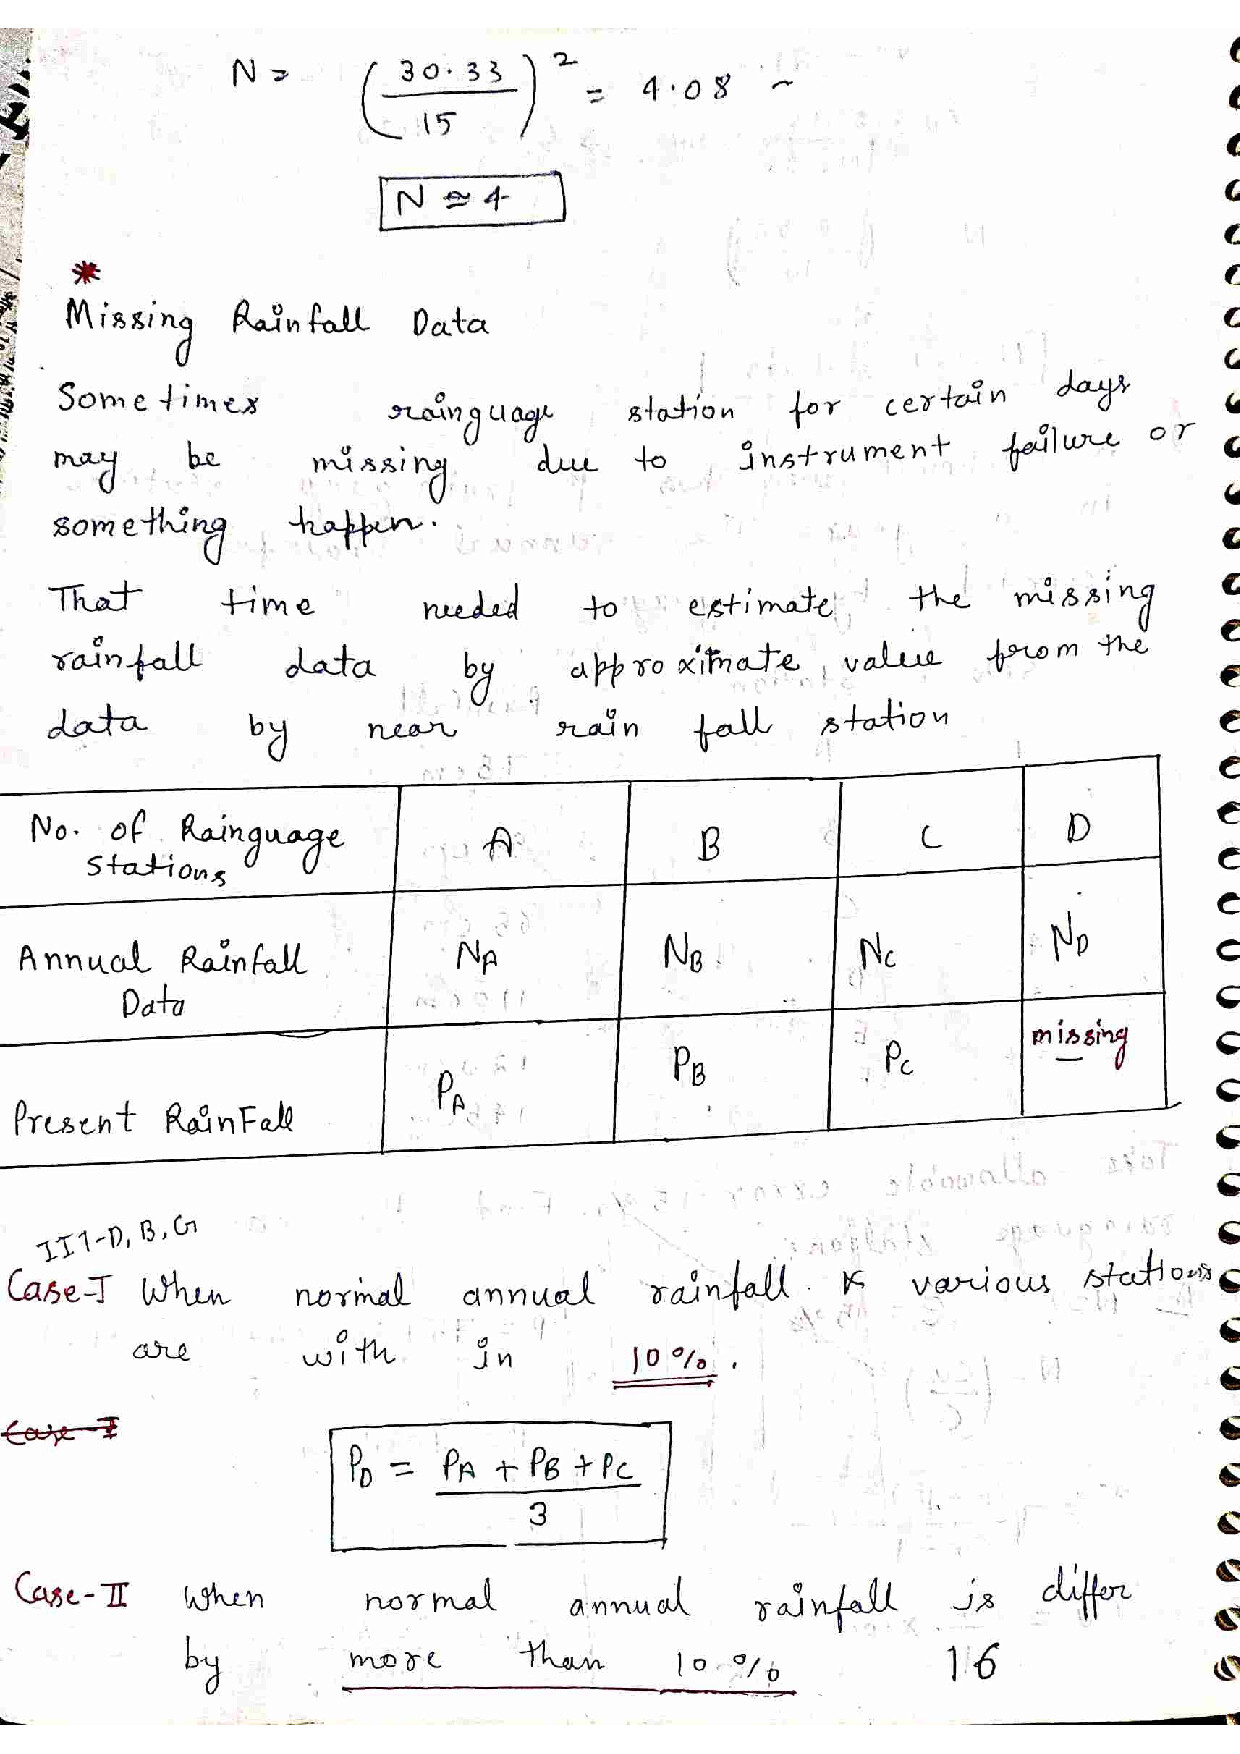 N = (30.33/15)² = 4.08 ~
N ≃ 4
*
Missing Rainfall Data
Sometimes rainguage station for certain days
may be missing due to instrument failure or
something happen.
That time needed to estimate the missing
rainfall data by approximate value from the
data by near rain fall station
No. of Rainguage Stations | A | B | C | D
Annual Rainfall Data | N_A | N_B | N_C | N_D
Present RainFall | P_A | P_B | P_C | missing
Case-I When normal annual rainfall various stations
are with in 10%.
Case-I
P_D = (P_A + P_B + P_C)/3
Case-II When normal annual rainfall is differ
by more than 10% 16